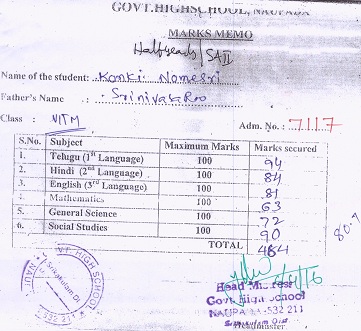 GOVT.HIGHSCHOOL, NAUPADA
MARKS MEMO
Halfyearly / SA II
Name of the student: Konki Nomesri
Father's Name : SrinivasaRao
Class : VII TM Adm. No. : 7117
S.No. Subject Maximum Marks Marks secured
1. Telugu (1st Language) 100 94
2. Hindi (2nd Language) 100 84
3. English (3rd Language) 100 81
4. Mathematics 100 63
5. General Science 100 72
6. Social Studies 100 90
TOTAL 484
80.7
HIGH SCHOOL
Srikakulam Dt
532 211
Govt. High School
NAUPADA-532 211
Srikakulam Dist
Headmaster